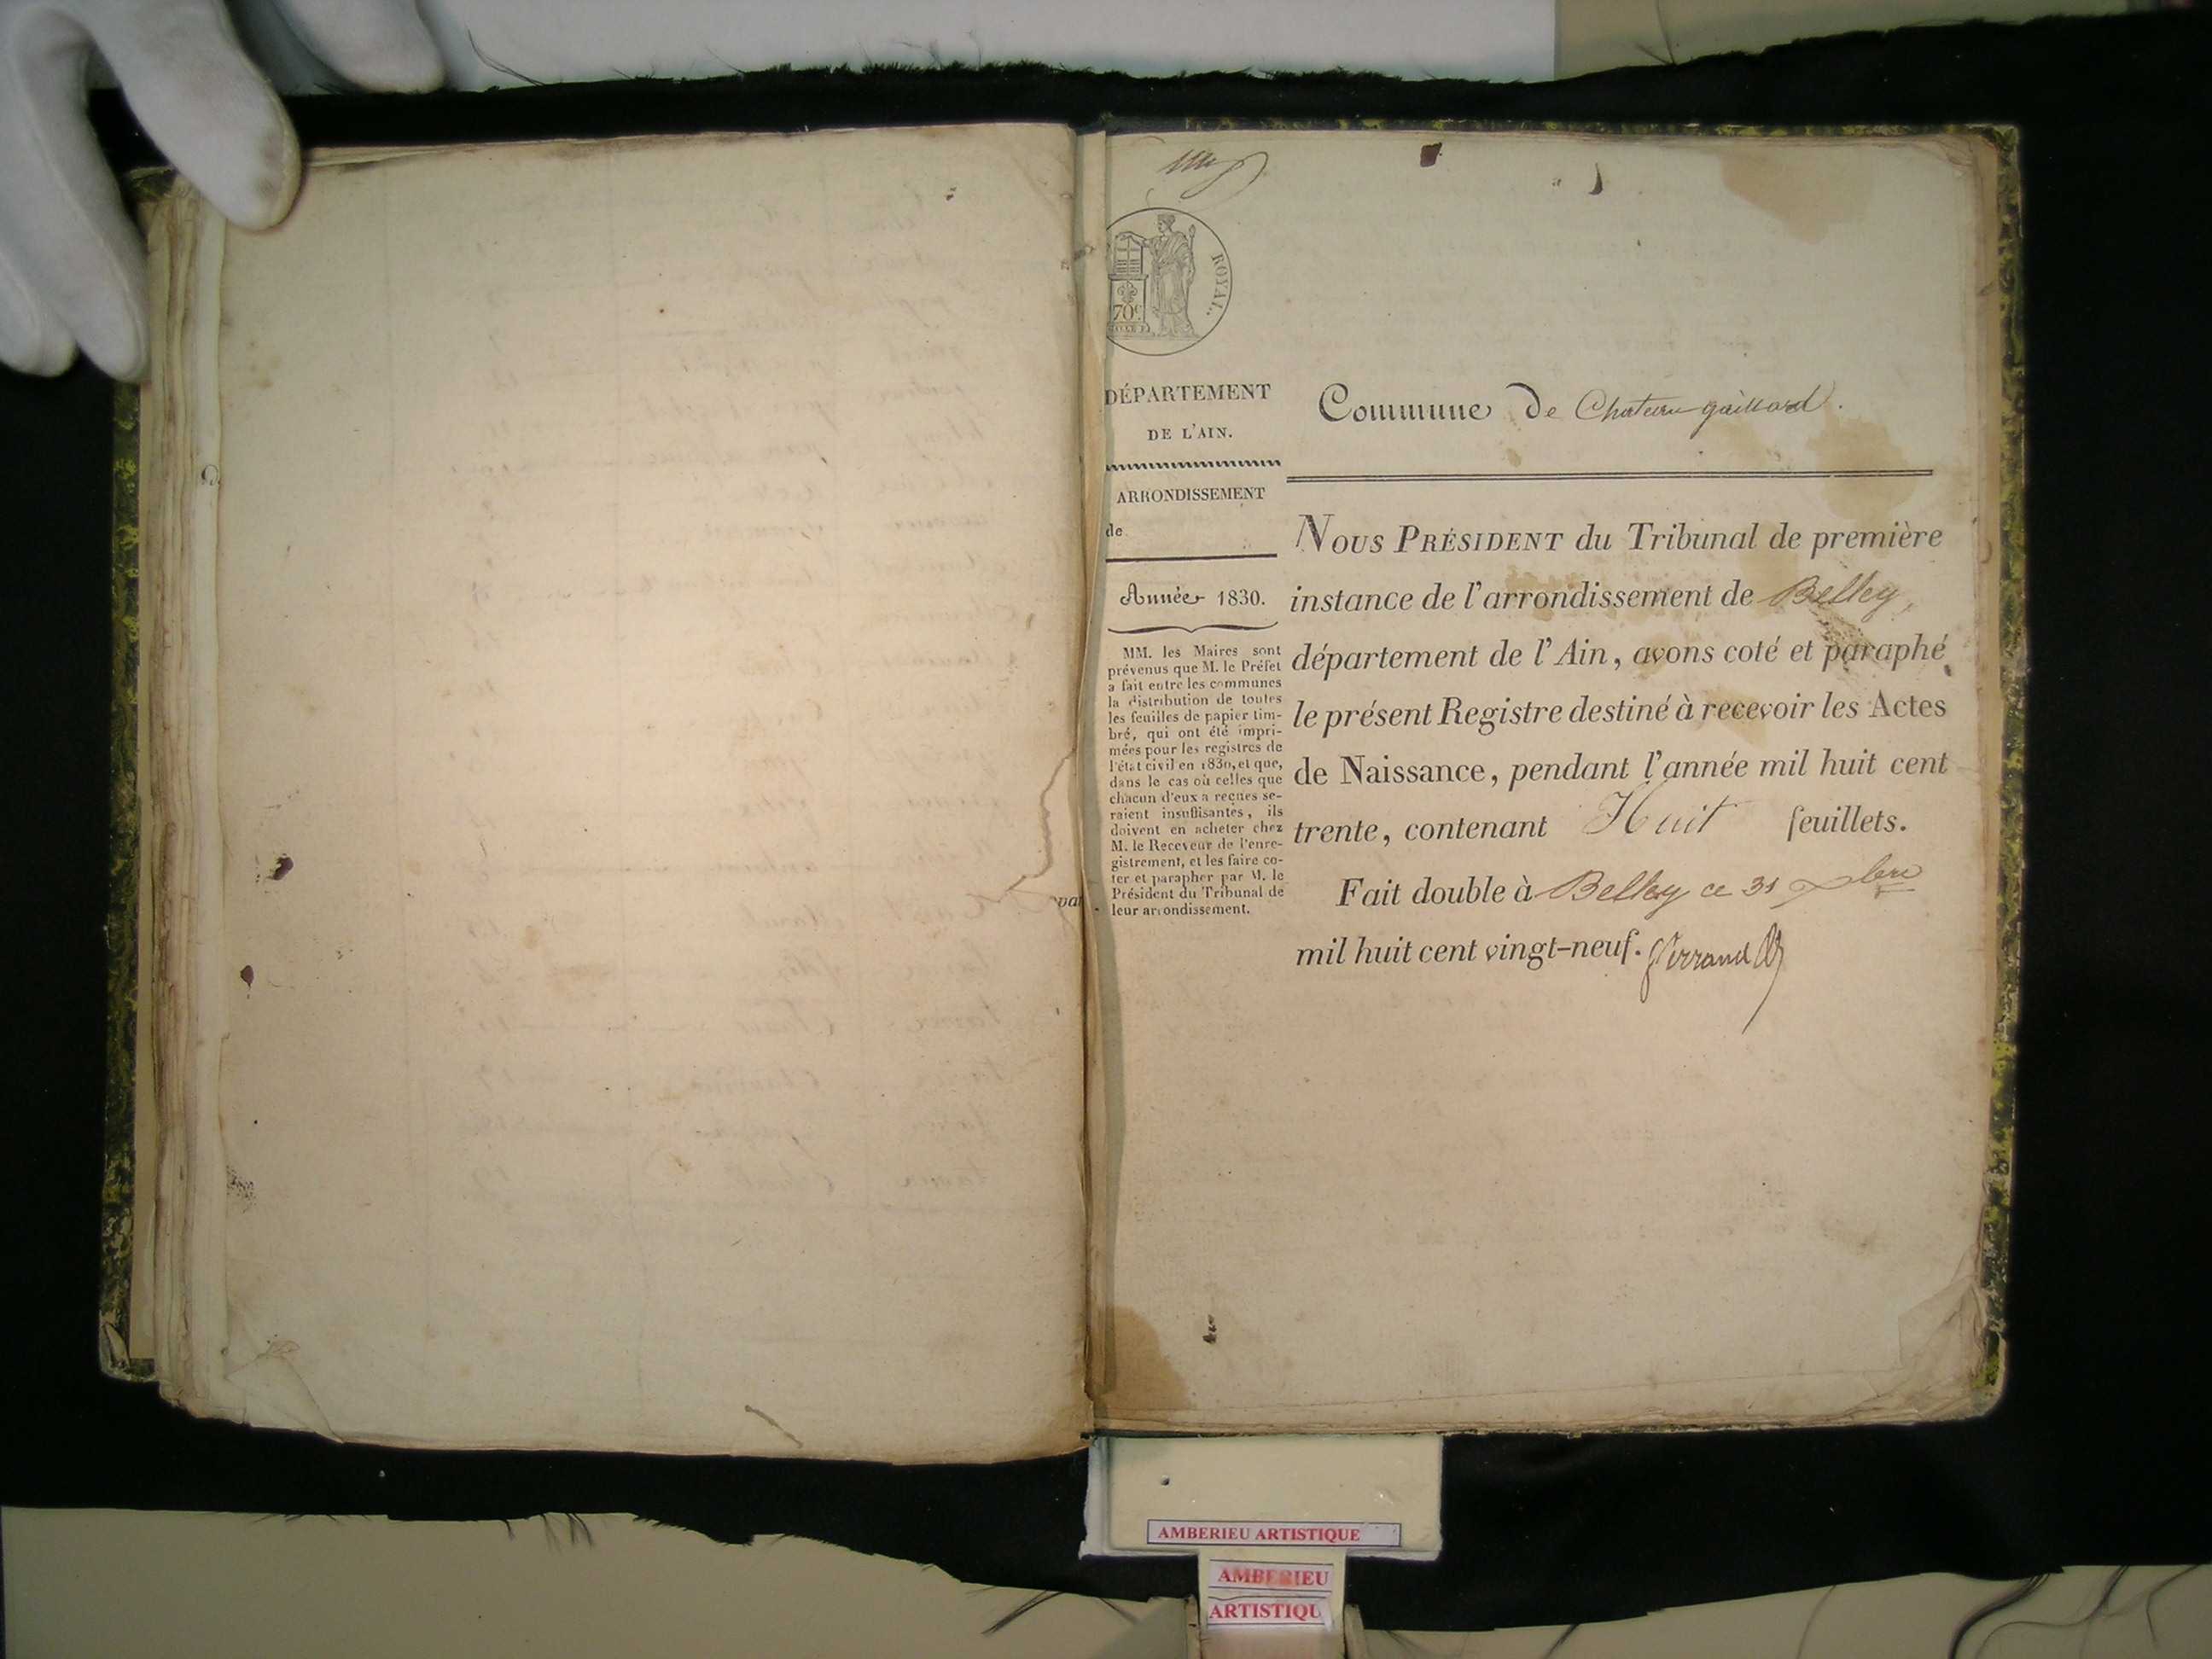 ROYAL
70c
DÉPARTEMENT
DE L'AIN.
ARRONDISSEMENT
de
Année 1830.
MM. les Maires sont
prévenus que M. le Préfet
a fait entre les communes
la distribution de toutes
les feuilles de papier tim-
bré, qui ont été impri-
mées pour les registres de
l'état civil en 1830, et que,
dans le cas où celles que
chacun d'eux a reçues se-
raient insuffisantes, ils
doivent en acheter chez
M. le Receveur de l'enre-
gistrement, et les faire co-
ter et parapher par M. le
Président du Tribunal de
leur arrondissement.
Commune de Chateau-gaillard.
NOUS PRÉSIDENT du Tribunal de première
instance de l'arrondissement de Belley,
département de l'Ain, avons coté et paraphé
le présent Registre destiné à recevoir les Actes
de Naissance, pendant l'année mil huit cent
trente, contenant Huit feuillets.
Fait double à Belley ce 31 Xbre
mil huit cent vingt-neuf.
AMBERIEU ARTISTIQUE
AMBERIEU
ARTISTIQU